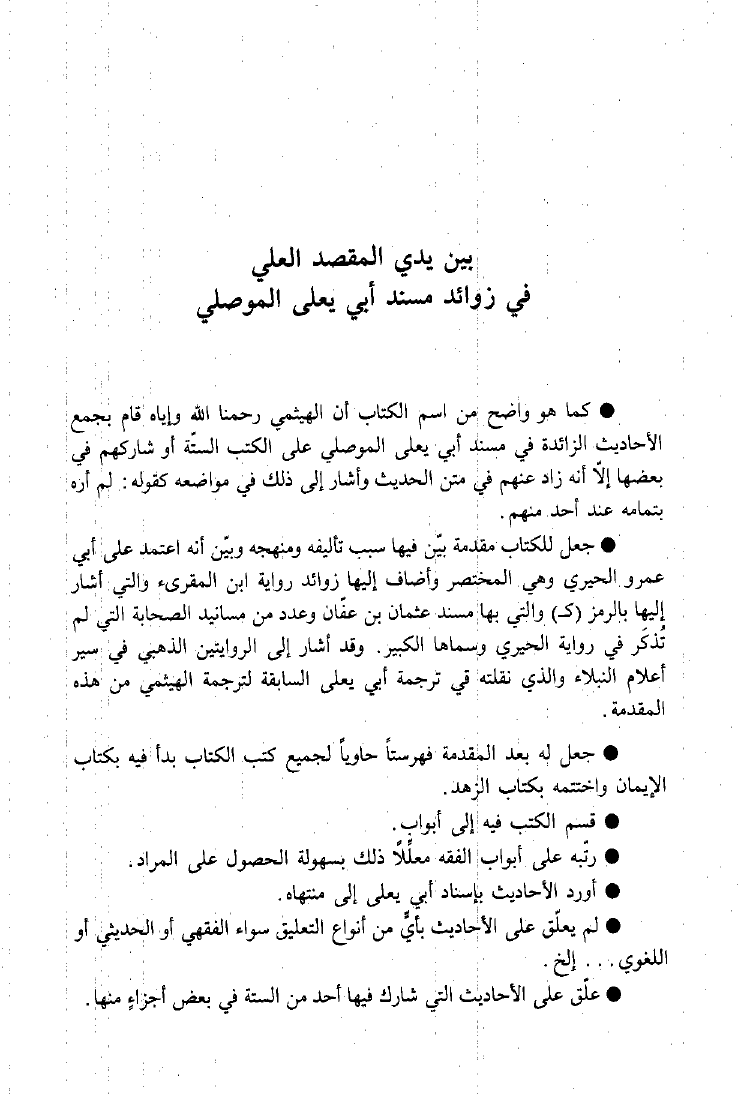 بين يدي المقصد العلي
في زوائد مسند أبي يعلى الموصلي
● كما هو واضح من اسم الكتاب أن الهيثمي رحمنا الله وإياه قام بجمع
الأحاديث الزائدة في مسند أبي يعلى الموصلي على الكتب الستّة أو شاركهم في
بعضها إلّا أنه زاد عنهم في متن الحديث وأشار إلى ذلك في مواضعه كقوله: لم أره
بتمامه عند أحد منهم.
● جعل للكتاب مقدمة بيّن فيها سبب تأليفه ومنهجه وبيّن أنه اعتمد على أبي
عمرو الحيري وهي المختصر وأضاف إليها زوائد رواية ابن المقرىء والتي أشار
إليها بالرمز (كـ) والتي بها مسند عثمان بن عفّان وعدد من مسانيد الصحابة التي لم
تُذكَر في رواية الحيري وسماها الكبير. وقد أشار إلى الروايتين الذهبي في سير
أعلام النبلاء والذي نقلته قي ترجمة أبي يعلى السابقة لترجمة الهيثمي من هذه
المقدمة.
● جعل له بعد المقدمة فهرستاً حاوياً لجميع كتب الكتاب بدأ فيه بكتاب
الإيمان واختتمه بكتاب الزهد.
● قسم الكتب فيه إلى أبواب.
● رتّبه على أبواب الفقه معلِّلًا ذلك بسهولة الحصول على المراد.
● أورد الأحاديث بإسناد أبي يعلى إلى منتهاه.
● لم يعلّق على الأحاديث بأيٍّ من أنواع التعليق سواء الفقهي أو الحديثي أو
اللغوي... إلخ.
● علّق على الأحاديث التي شارك فيها أحد من الستة في بعض أجزاءٍ منها.